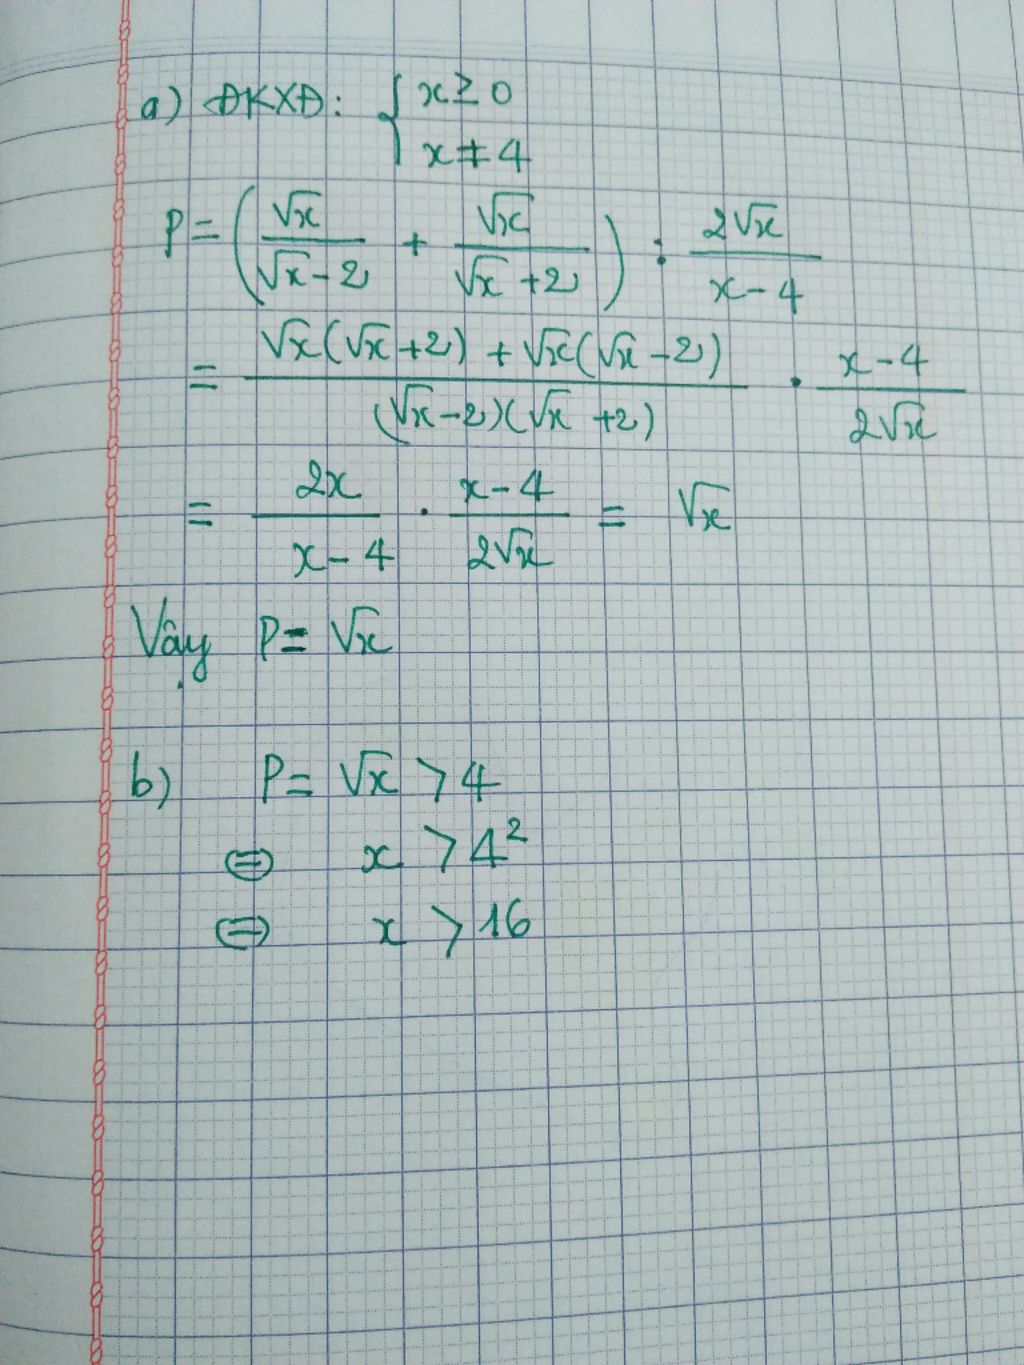 a) ĐKXĐ: { x ≥ 0
x ≠ 4
P = (√x/(√x - 2) + √x/(√x + 2)) : 2√x/(x - 4)
= (√x(√x + 2) + √x(√x - 2))/((√x - 2)(√x + 2)) . (x - 4)/(2√x)
= 2x/(x - 4) . (x - 4)/(2√x) = √x
Vậy P = √x
b) P = √x > 4
⇔ x > 4²
⇔ x > 16